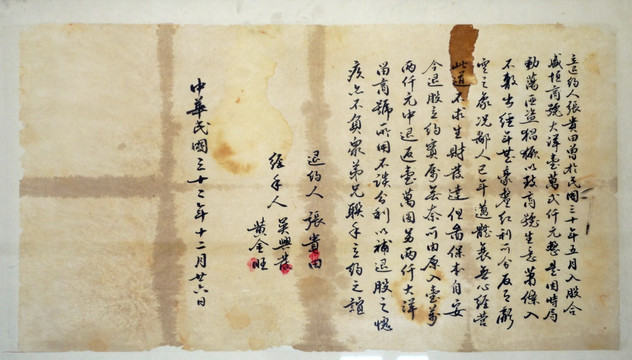 立退約人張貴田曾於民國三十年五月入股合
盛恒商號大洋壹萬貳仟元整是因時局
動蕩匪盜猖撅以致商號生意蕭條入
不敷出經年無豪厘紅利可分反有虧
空之象况鄙人已年邁體衰無心經營
此道不求生財發達但圖保本自安
今退股立約實屬無奈可由原入壹萬
兩仟元中退返壹萬圓另兩仟大洋
留商號所用不談分利以補退股之愧
疚亦不負眾弟兄聯手立約之誼
退約人 張貴田
經手人 吳興
黃金旺
中華民國三十二年十二月廿六日